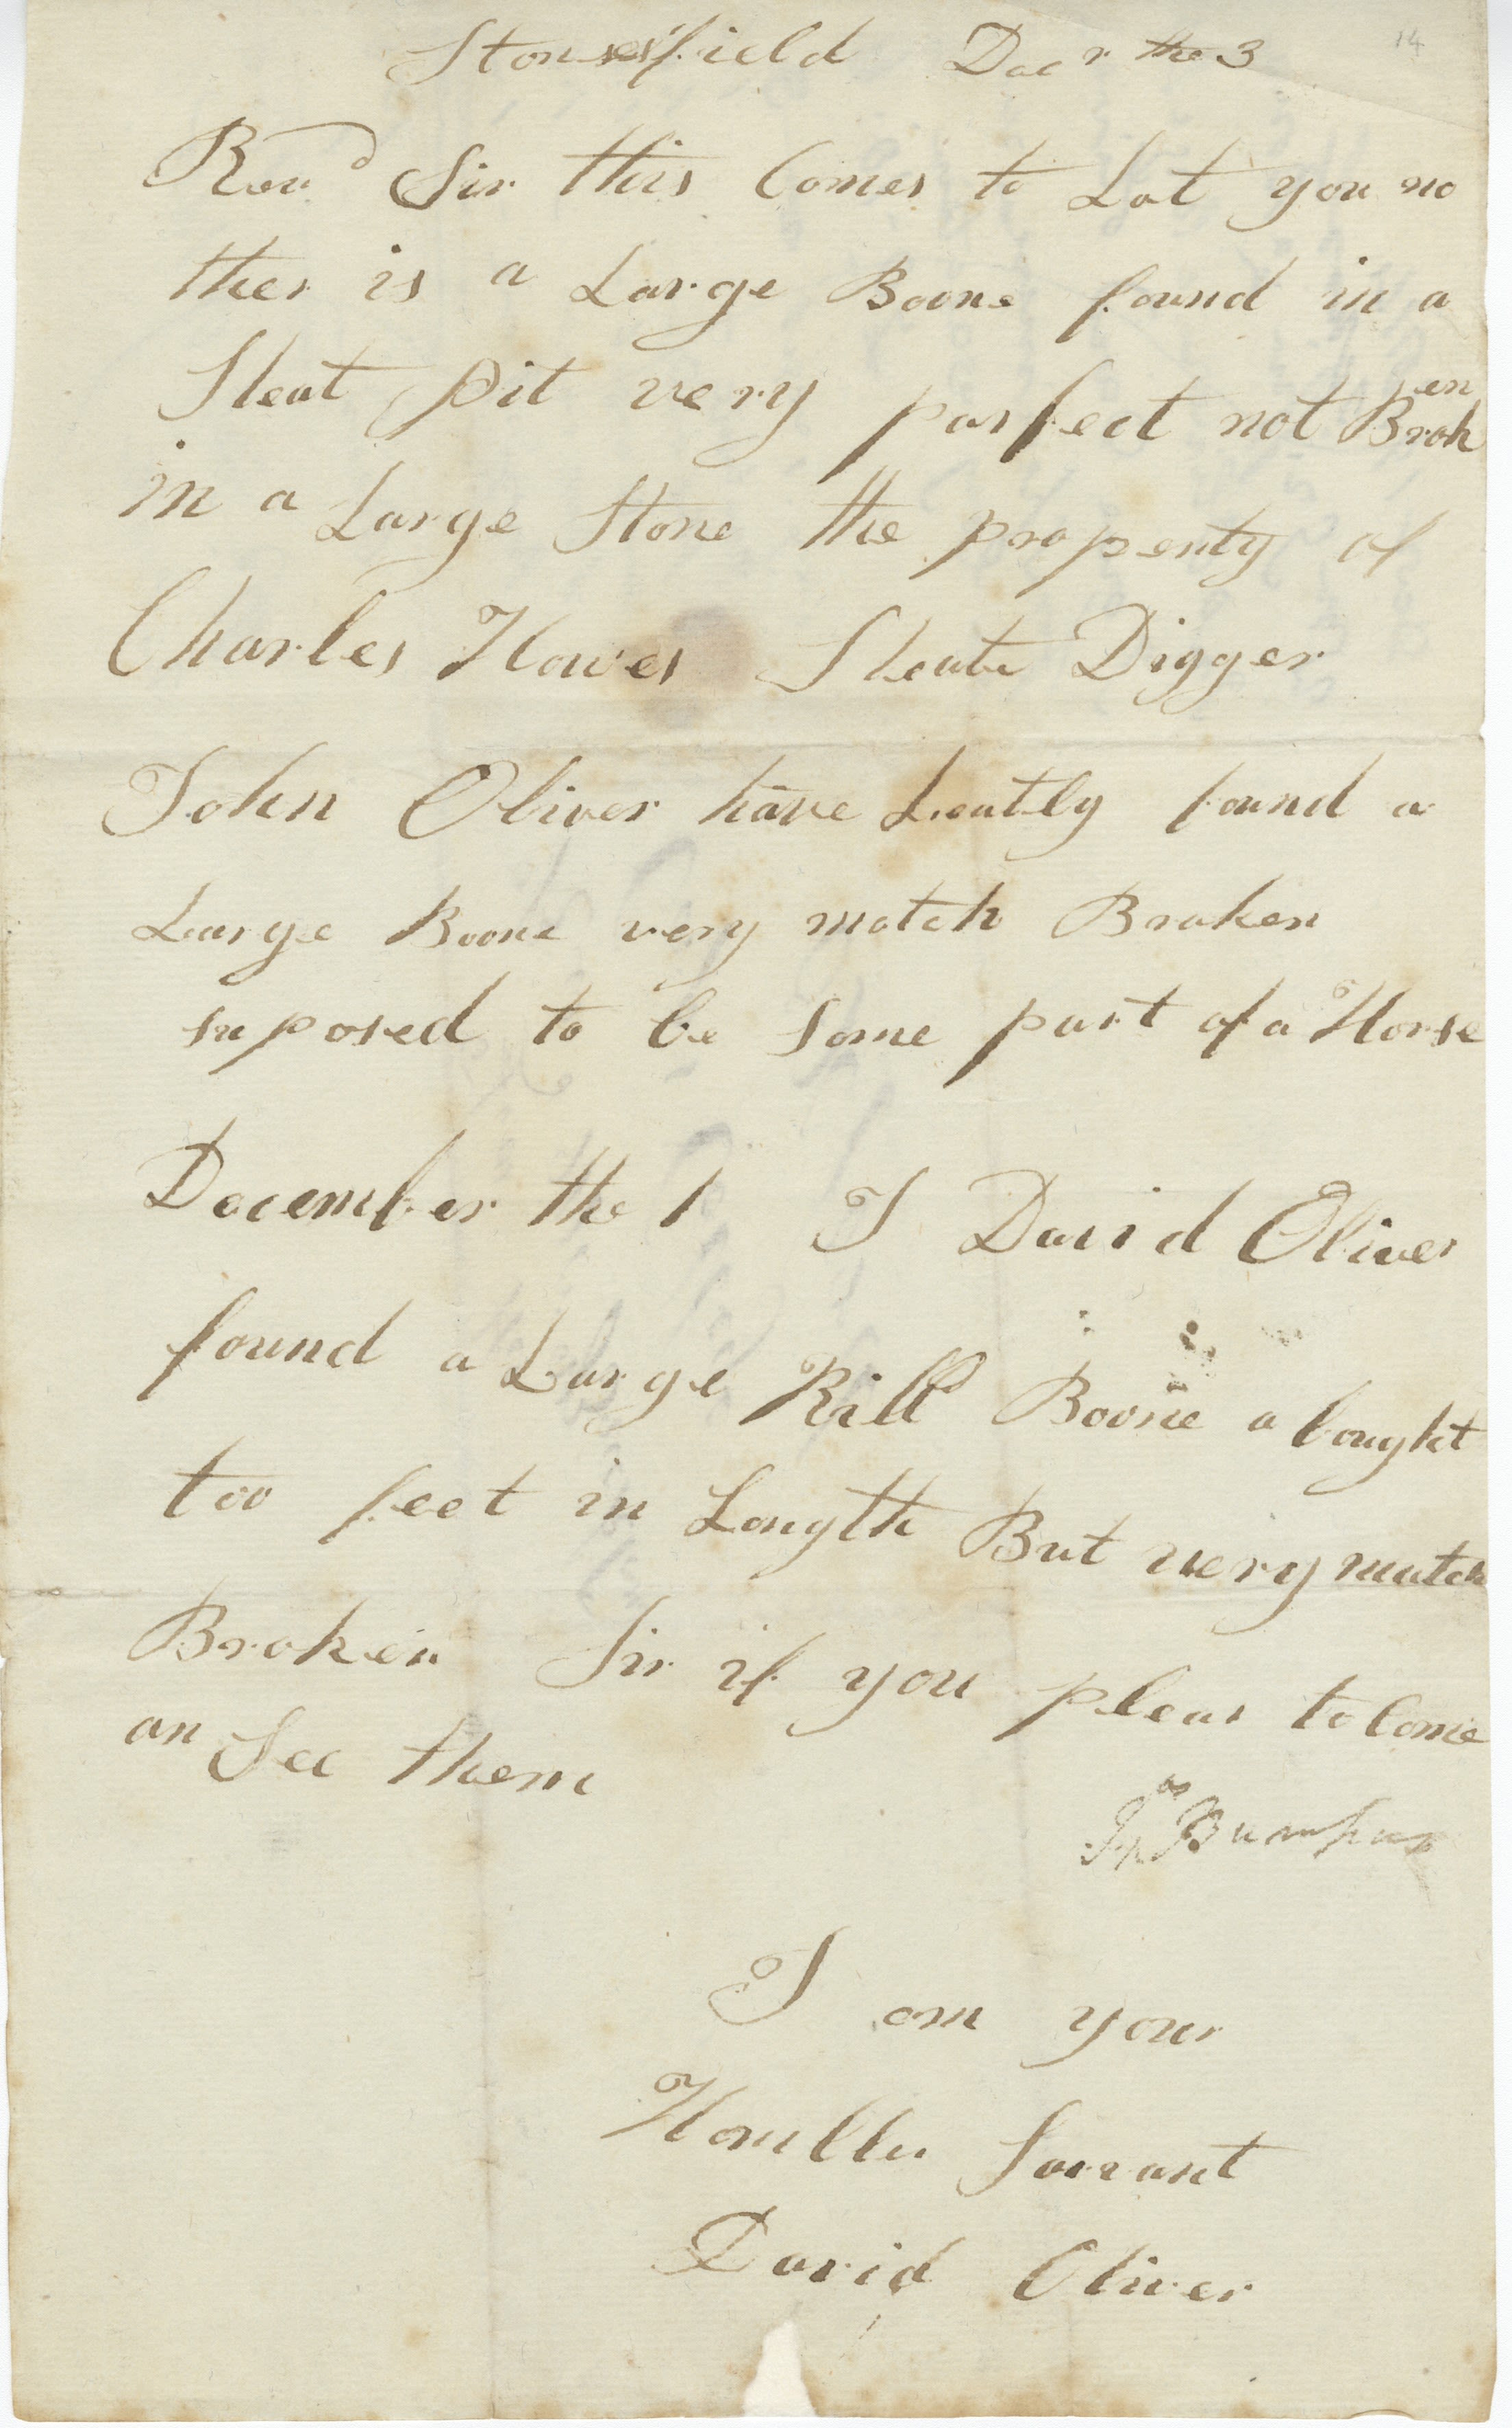 Stonesfield Decr the 3
14
Revd Sir this Comes to Let you no
ther is a Large Boone found in a
Sleat Pit very parfect not Broken
in a Large Stone the properity of
Charles Hawes Sleate Digger
John Oliver have Leatly found a
Large Boone very motch Broken
suposed to be some part of a Horse
December the 1 I David Oliver
found a Large Ribb Boone a bought
too feet in Length But very mutch
Broken Sir if you pleas to Come
an See them
Bumpus
I am your
Homble Sarvant
David Oliver